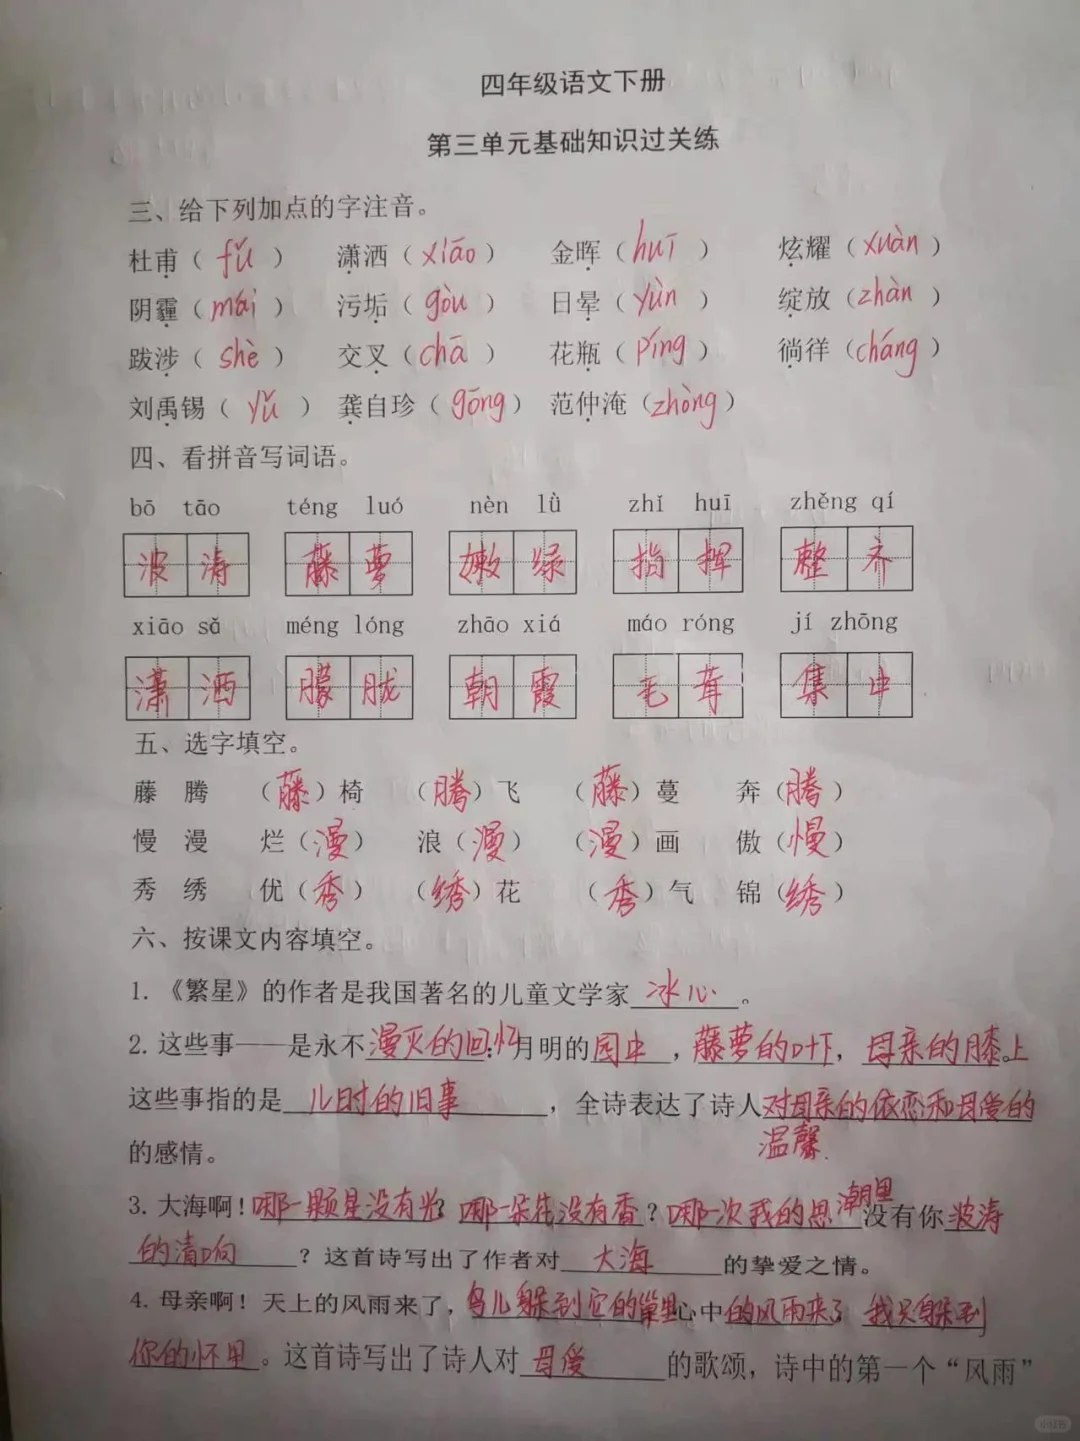 四年级语文下册
第三单元基础知识过关练
三、给下列加点的字注音。
杜甫（fǔ） 潇洒（xiāo） 金晖（huī） 炫耀（xuàn）
阴霾（mái） 污垢（gòu） 日晕（yùn） 绽放（zhàn）
跋涉（shè） 交叉（chā） 花瓶（píng） 徜徉（cháng）
刘禹锡（yǔ） 龚自珍（gōng） 范仲淹（zhòng）
四、看拼音写词语。
bō tāo téng luó nèn lǜ zhǐ huī zhěng qí
波涛 藤萝 嫩绿 指挥 整齐
xiāo sǎ méng lóng zhāo xiá máo róng jí zhōng
潇洒 朦胧 朝霞 毛茸 集中
五、选字填空。
藤 腾 （藤）椅 （腾）飞 （藤）蔓 奔（腾）
慢 漫 烂（漫） 浪（漫） （漫）画 傲（慢）
秀 绣 优（秀） （绣）花 （秀）气 锦（绣）
六、按课文内容填空。
1.《繁星》的作者是我国著名的儿童文学家冰心。
2.这些事——是永不漫灭的回忆：月明的园中，藤萝的叶下，母亲的膝上。
这些事指的是儿时的旧事，全诗表达了诗人对母亲的依恋和母爱的
温馨
的感情。
3.大海啊！哪一颗星没有光？哪一朵花没有香？哪一次我的思潮里没有你波涛
的清响？这首诗写出了作者对大海的挚爱之情。
4.母亲啊！天上的风雨来了，鸟儿躲到它的巢里心中的风雨来了 我只躲到
你的怀里。这首诗写出了诗人对母爱的歌颂，诗中的第一个“风雨”